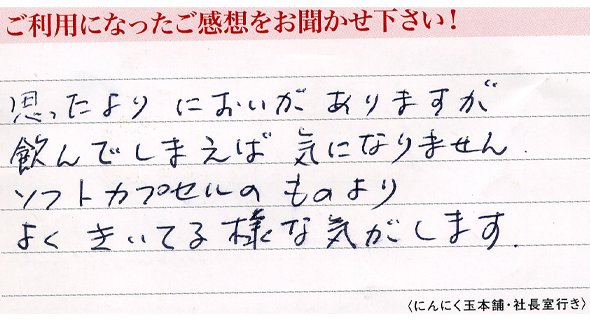 ご利用になったご感想をお聞かせ下さい！
思ったより においが ありますが
飲んでしまえば 気になりません.
ソフトカプセルの ものより
よく きいてる様な気がします.
〈にんにく玉本舗・社長室行き〉